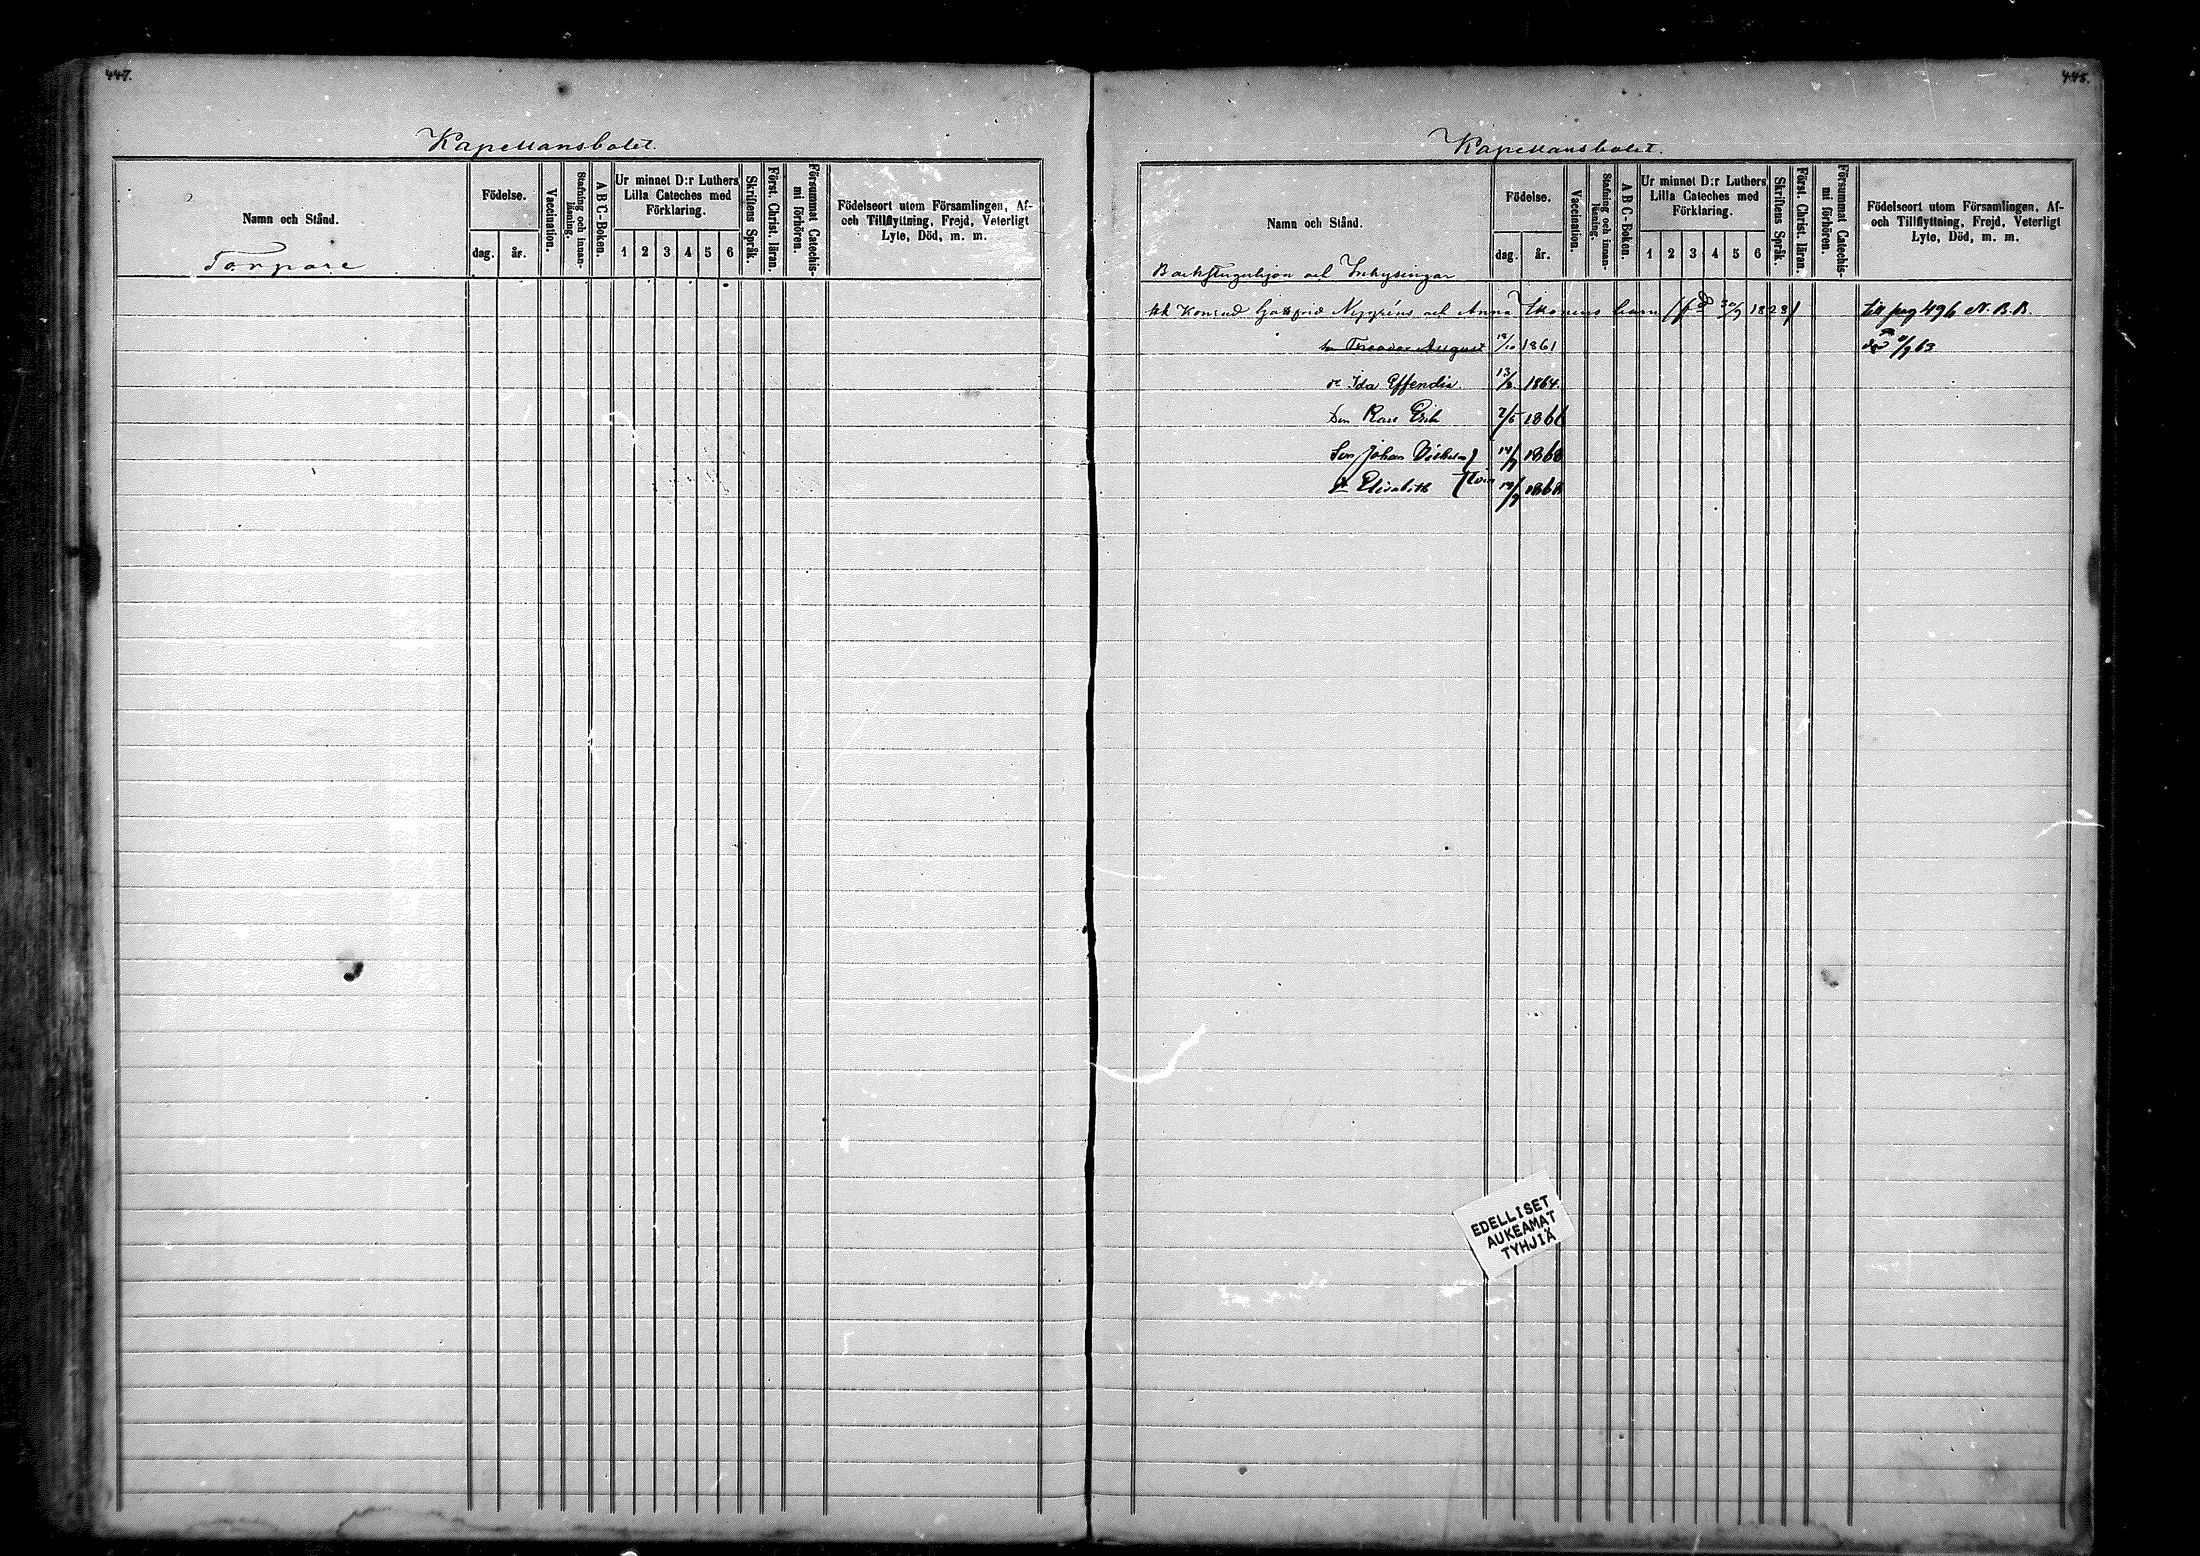 447.
Kapellansbolet.
Namn och Stånd.
Födelse.
dag.
år.
Vaccination.
Stafning och innan-
läsning.
ABC-Boken.
Ur minnet D:r Luthers
Lilla Cateches med
Förklaring.
1 2 3 4 5 6
Skriftens Språk.
Först. Christ. läran.
Försummat Catechis-
mi förhören.
Födelseort utom Församlingen, Af-
och Tillflyttning, Frejd, Veterligt
Lyte, Död, m. m.
Torpare
448.
Kapellansbolet.
Namn och Stånd.
Födelse.
dag.
år.
Vaccination.
Stafning och innan-
läsning.
ABC-Boken.
Ur minnet D:r Luthers
Lilla Cateches med
Förklaring.
1 2 3 4 5 6
Skriftens Språk.
Först. Christ. läran.
Försummat Catechis-
mi förhören.
Födelseort utom Församlingen, Af-
och Tillflyttning, Frejd, Veterligt
Lyte, Död, m. m.
Backstuguhjon och Inhysingar
Konrad Nygréns och Anna barn 1828) till pag 496 N.B.B.
Theodor August 1861
Ida Effendia. 1864.
Son Karl Erik 7/5 1866
Son Johan Vilhelm 1868
Elisabeth 1868
EDELLISET
AUKEAMAT
TYHJIÄ